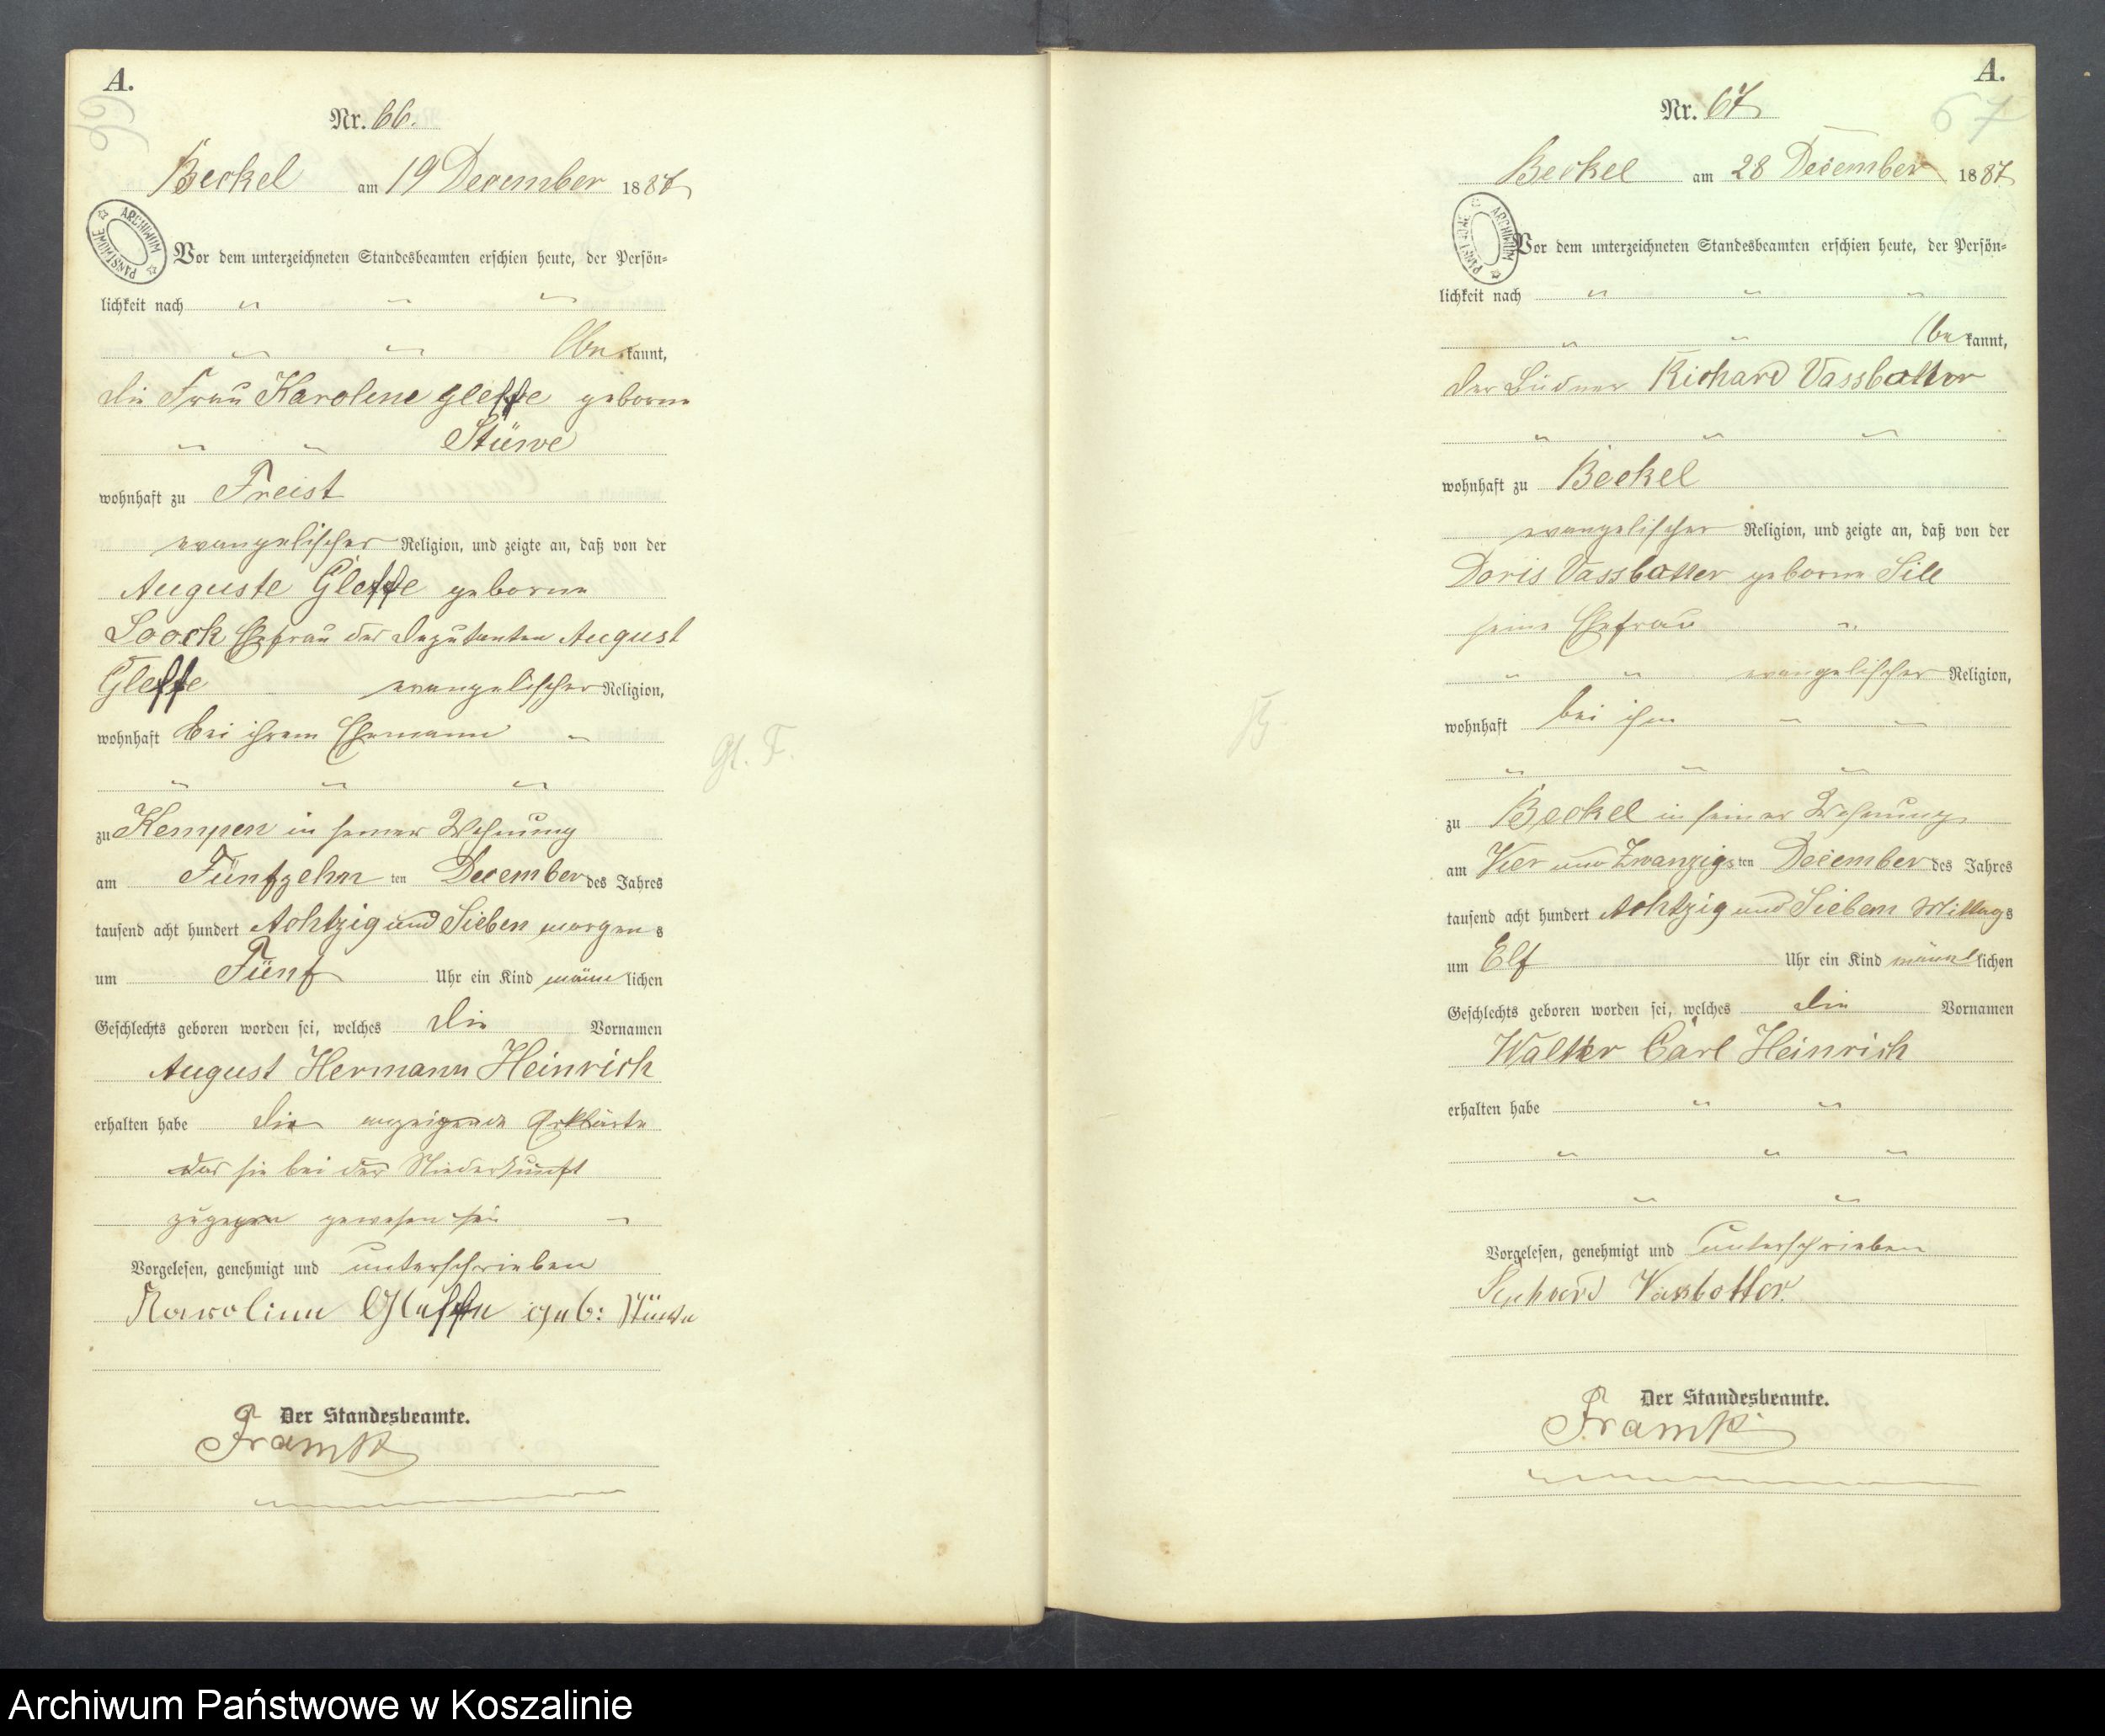 A.
66
Nr. 66.
Beckel am 19 December 1887
ARCHIWUM PAŃSTWOWE
Vor dem unterzeichneten Standesbeamten erschien heute, der Persön-
lichkeit nach " " "
" " bekannt,
die Frau Karoline Gleffe geborne
" " Stüwe
wohnhaft zu Freist
evangelischer Religion, und zeigte an, daß von der
Auguste Gleffe geborne
Loock Ehefrau des Deputanten August
Gleffe evangelischer Religion,
wohnhaft bei ihrem Ehemann "
" " "
zu Kempen in seiner Wohnung
am Fünfzehn ten December des Jahres
tausend acht hundert Achtzig und Sieben morgens
um Fünf Uhr ein Kind männlichen
Geschlechts geboren worden sei, welches die Vornamen
August Hermann Heinrich
erhalten habe die anzeigende Erklärte
das sie bei der Niederkunft
zugegen gewesen sei "
Vorgelesen, genehmigt und unterschrieben
Karoline Gleffe geb: Stüwe
Der Standesbeamte.
Framk
Gl. F.
A.
67
Nr. 67
Beckel am 28 December 1887
ARCHIWUM PAŃSTWOWE
Vor dem unterzeichneten Standesbeamten erschien heute, der Persön-
lichkeit nach " " "
" " bekannt,
der Büdner Richard Vassbotter
" " "
wohnhaft zu Beckel
evangelischer Religion, und zeigte an, daß von der
Doris Vassbotter geborne Sill
seine Ehefrau "
" " evangelischer Religion,
wohnhaft bei ihm " "
" " "
zu Beckel in seiner Wohnung
am Vier und Zwanzigsten December des Jahres
tausend acht hundert Achtzig und Sieben Mittags
um Elf Uhr ein Kind männlichen
Geschlechts geboren worden sei, welches die Vornamen
Walter Carl Heinrich
erhalten habe " "
" " "
" "
Vorgelesen, genehmigt und unterschrieben
Richard Vassbotter.
Der Standesbeamte.
Framk
Archiwum Państwowe w Koszalinie